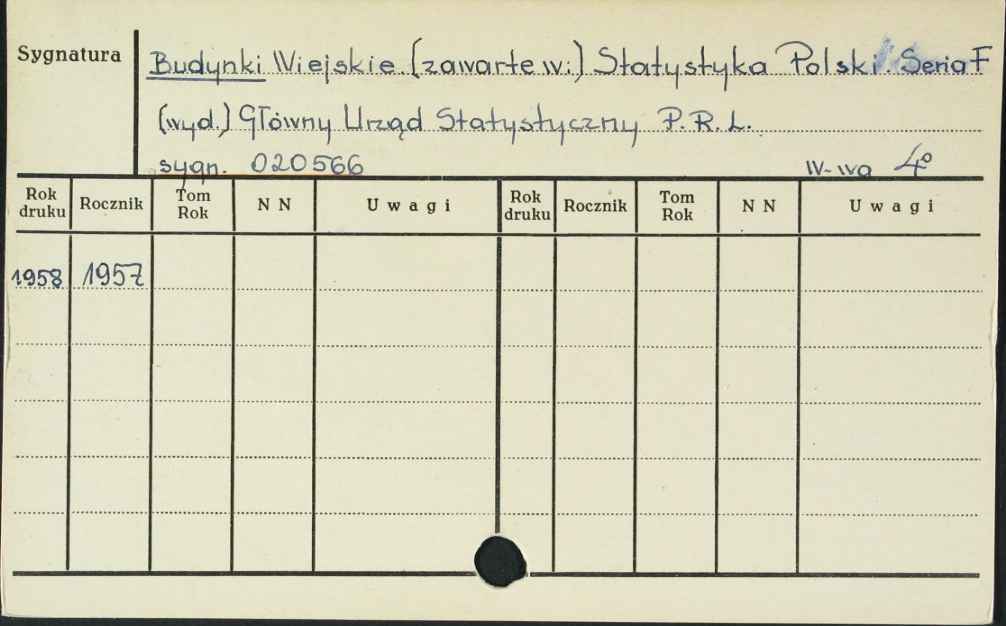 Sygnatura
Budynki Wiejskie (zawarte w:) Statystyka Polski. Seria F
(wyd.) Główny Urząd Statystyczny P.R.L.
sygn. 020566 W-wa 4°
Rok druku Rocznik Tom Rok N N Uwagi Rok druku Rocznik Tom Rok N N Uwagi
1958 1957